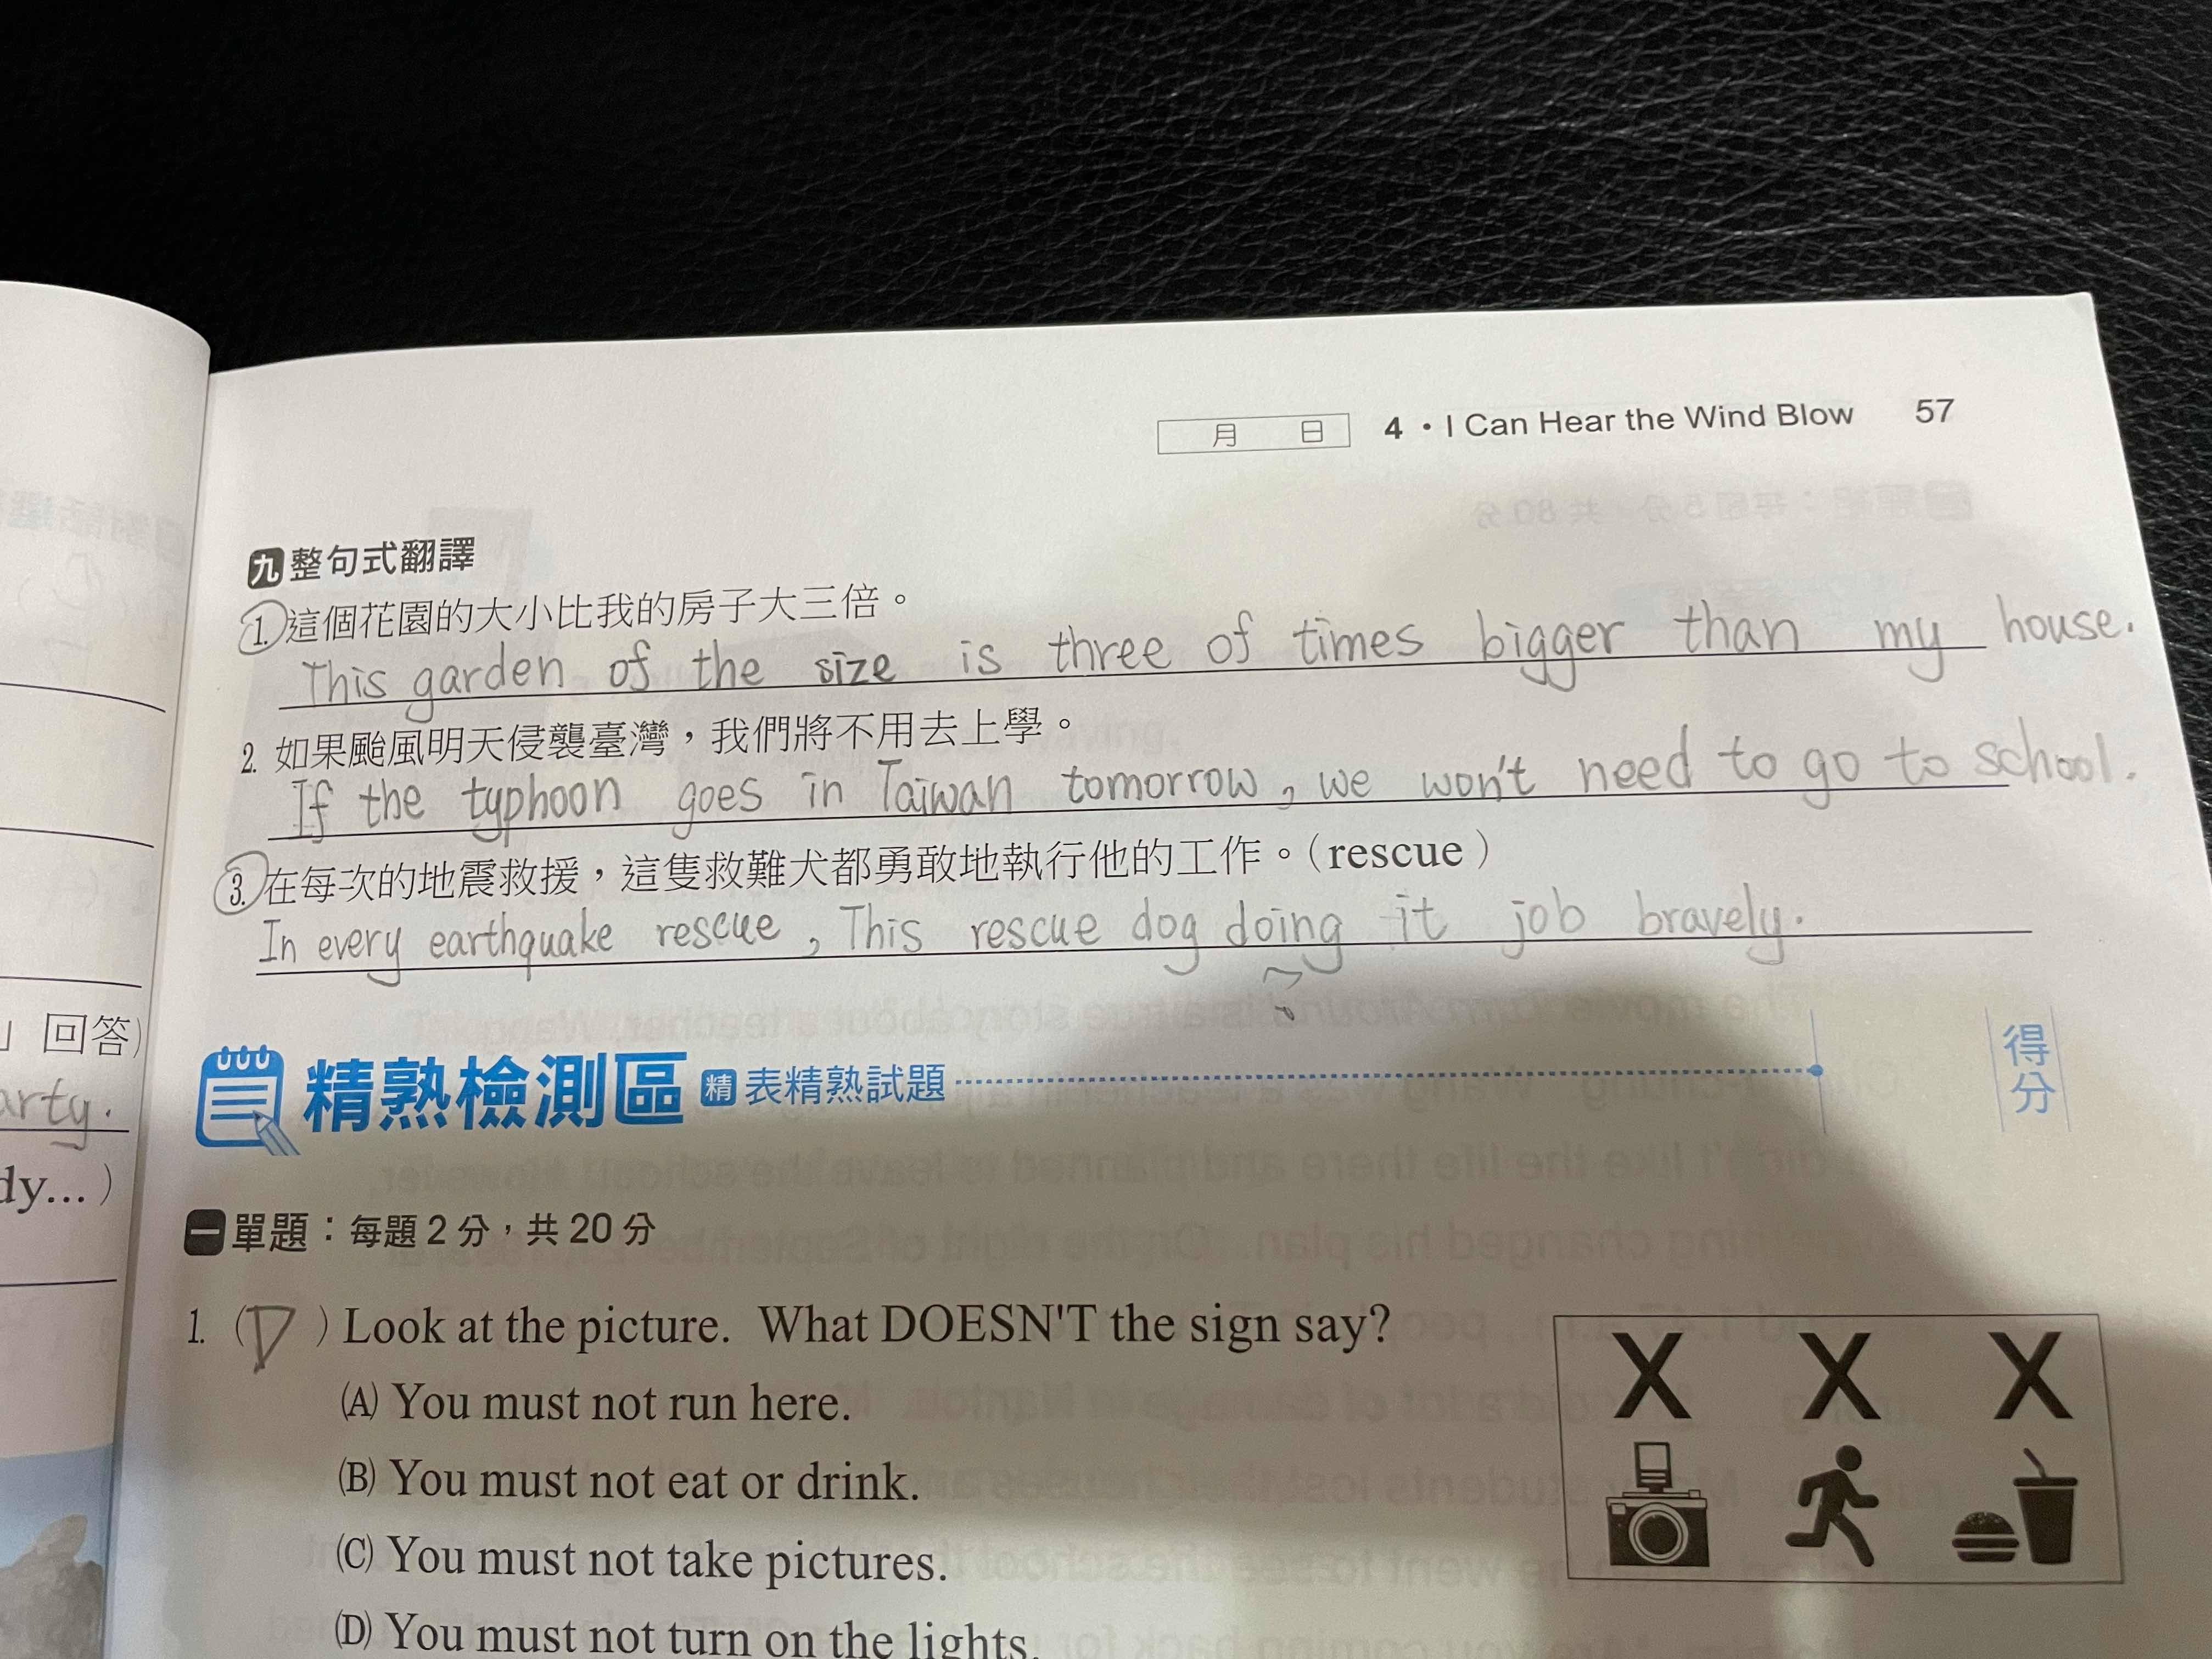 月 日 4・I Can Hear the Wind Blow 57
九 整句式翻譯
1. 這個花園的大小比我的房子大三倍。
This garden of the size is three of times bigger than my house.
2. 如果颱風明天侵襲臺灣，我們將不用去上學。
If the typhoon goes in Taiwan tomorrow, we won't need to go to school.
3. 在每次的地震救援，這隻救難犬都勇敢地執行他的工作。（rescue）
In every earthquake rescue, This rescue dog doing it job bravely.
?
」回答)
arty.
dy...）
精熟檢測區 精 表精熟試題
得分
一 單題：每題2分，共20分
1. (D) Look at the picture. What DOESN'T the sign say?
X X X
(A) You must not run here.
(B) You must not eat or drink.
(C) You must not take pictures.
(D) You must not turn on the lights.